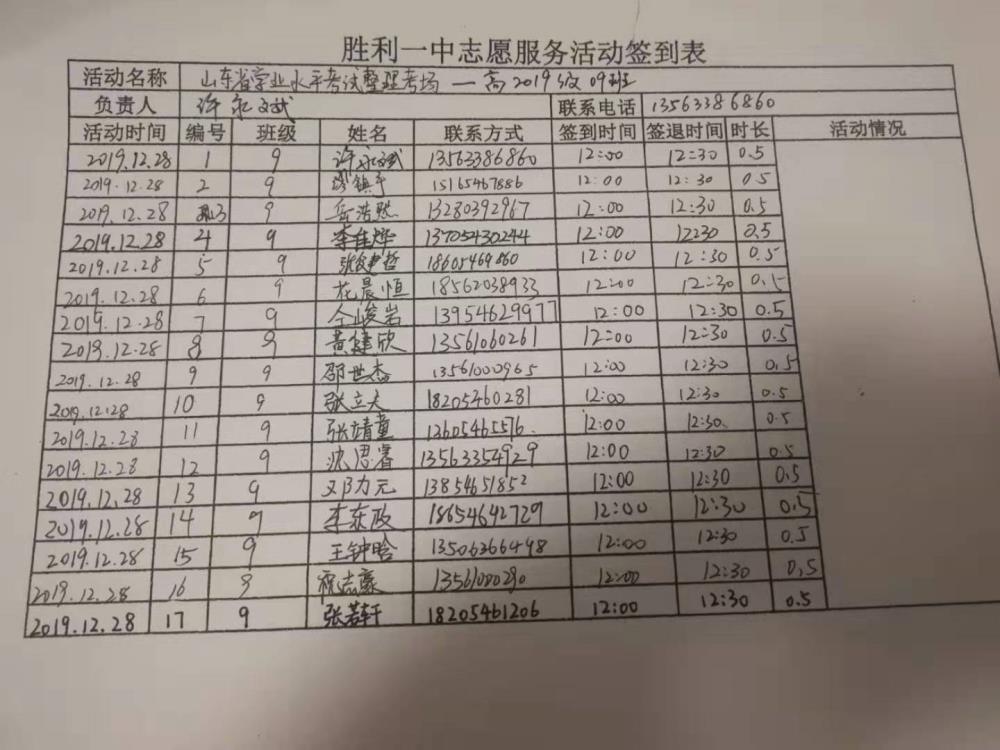 胜利一中志愿服务活动签到表
活动名称 山东省学业水平考试整理考场 — 高2019级09班
负责人 许永文斌 联系电话 13563386860
活动时间 编号 班级 姓名 联系方式 签到时间 签退时间 时长 活动情况
2019.12.28 1 9 13563386860 12:00 12:30 0.5
2019.12.28 2 9 镇宇 15165467886 12:00 12:30 0.5
2019.12.28 3 9 岳浩然 13280392967 12:00 12:30 0.5
2019.12.28 4 9 李佳烨 13705430244 12:00 12:30 0.5
2019.12.28 5 9 哲 12:00 12:30 0.5
2019.12.28 6 9 花晨恒 18562038933 12:00 12:30 0.5
2019.12.28 7 9 仝峻岩 13954629977 12:00 12:30 0.5
2019.12.28 8 9 黄健欣 13561060261 12:00 12:30 0.5
2019.12.28 9 9 邵世杰 13561000965 12:00 12:30 0.5
2019.12.28 10 9 张立夫 18205460281 12:00 12:30 0.5
2019.12.28 11 9 张靖童 13605465576. 12:00 12:30. 0.5
2019.12.28 12 9 沈思睿 13563354929 12:00 12:30 0.5
2019.12.28 13 9 邓力元 13854651852 12:00 12:30 0.5
2019.12.28 14 9 李东政 18654642729 12:00 12:30 0.5
2019.12.28 15 9 王钟晗 13506366498 12:00 12:30 0.5
2019.12.28 16 9 志豪 12:00 12:30 0.5
2019.12.28 17 9 张若轩 18205461206 12:00 12:30 0.5